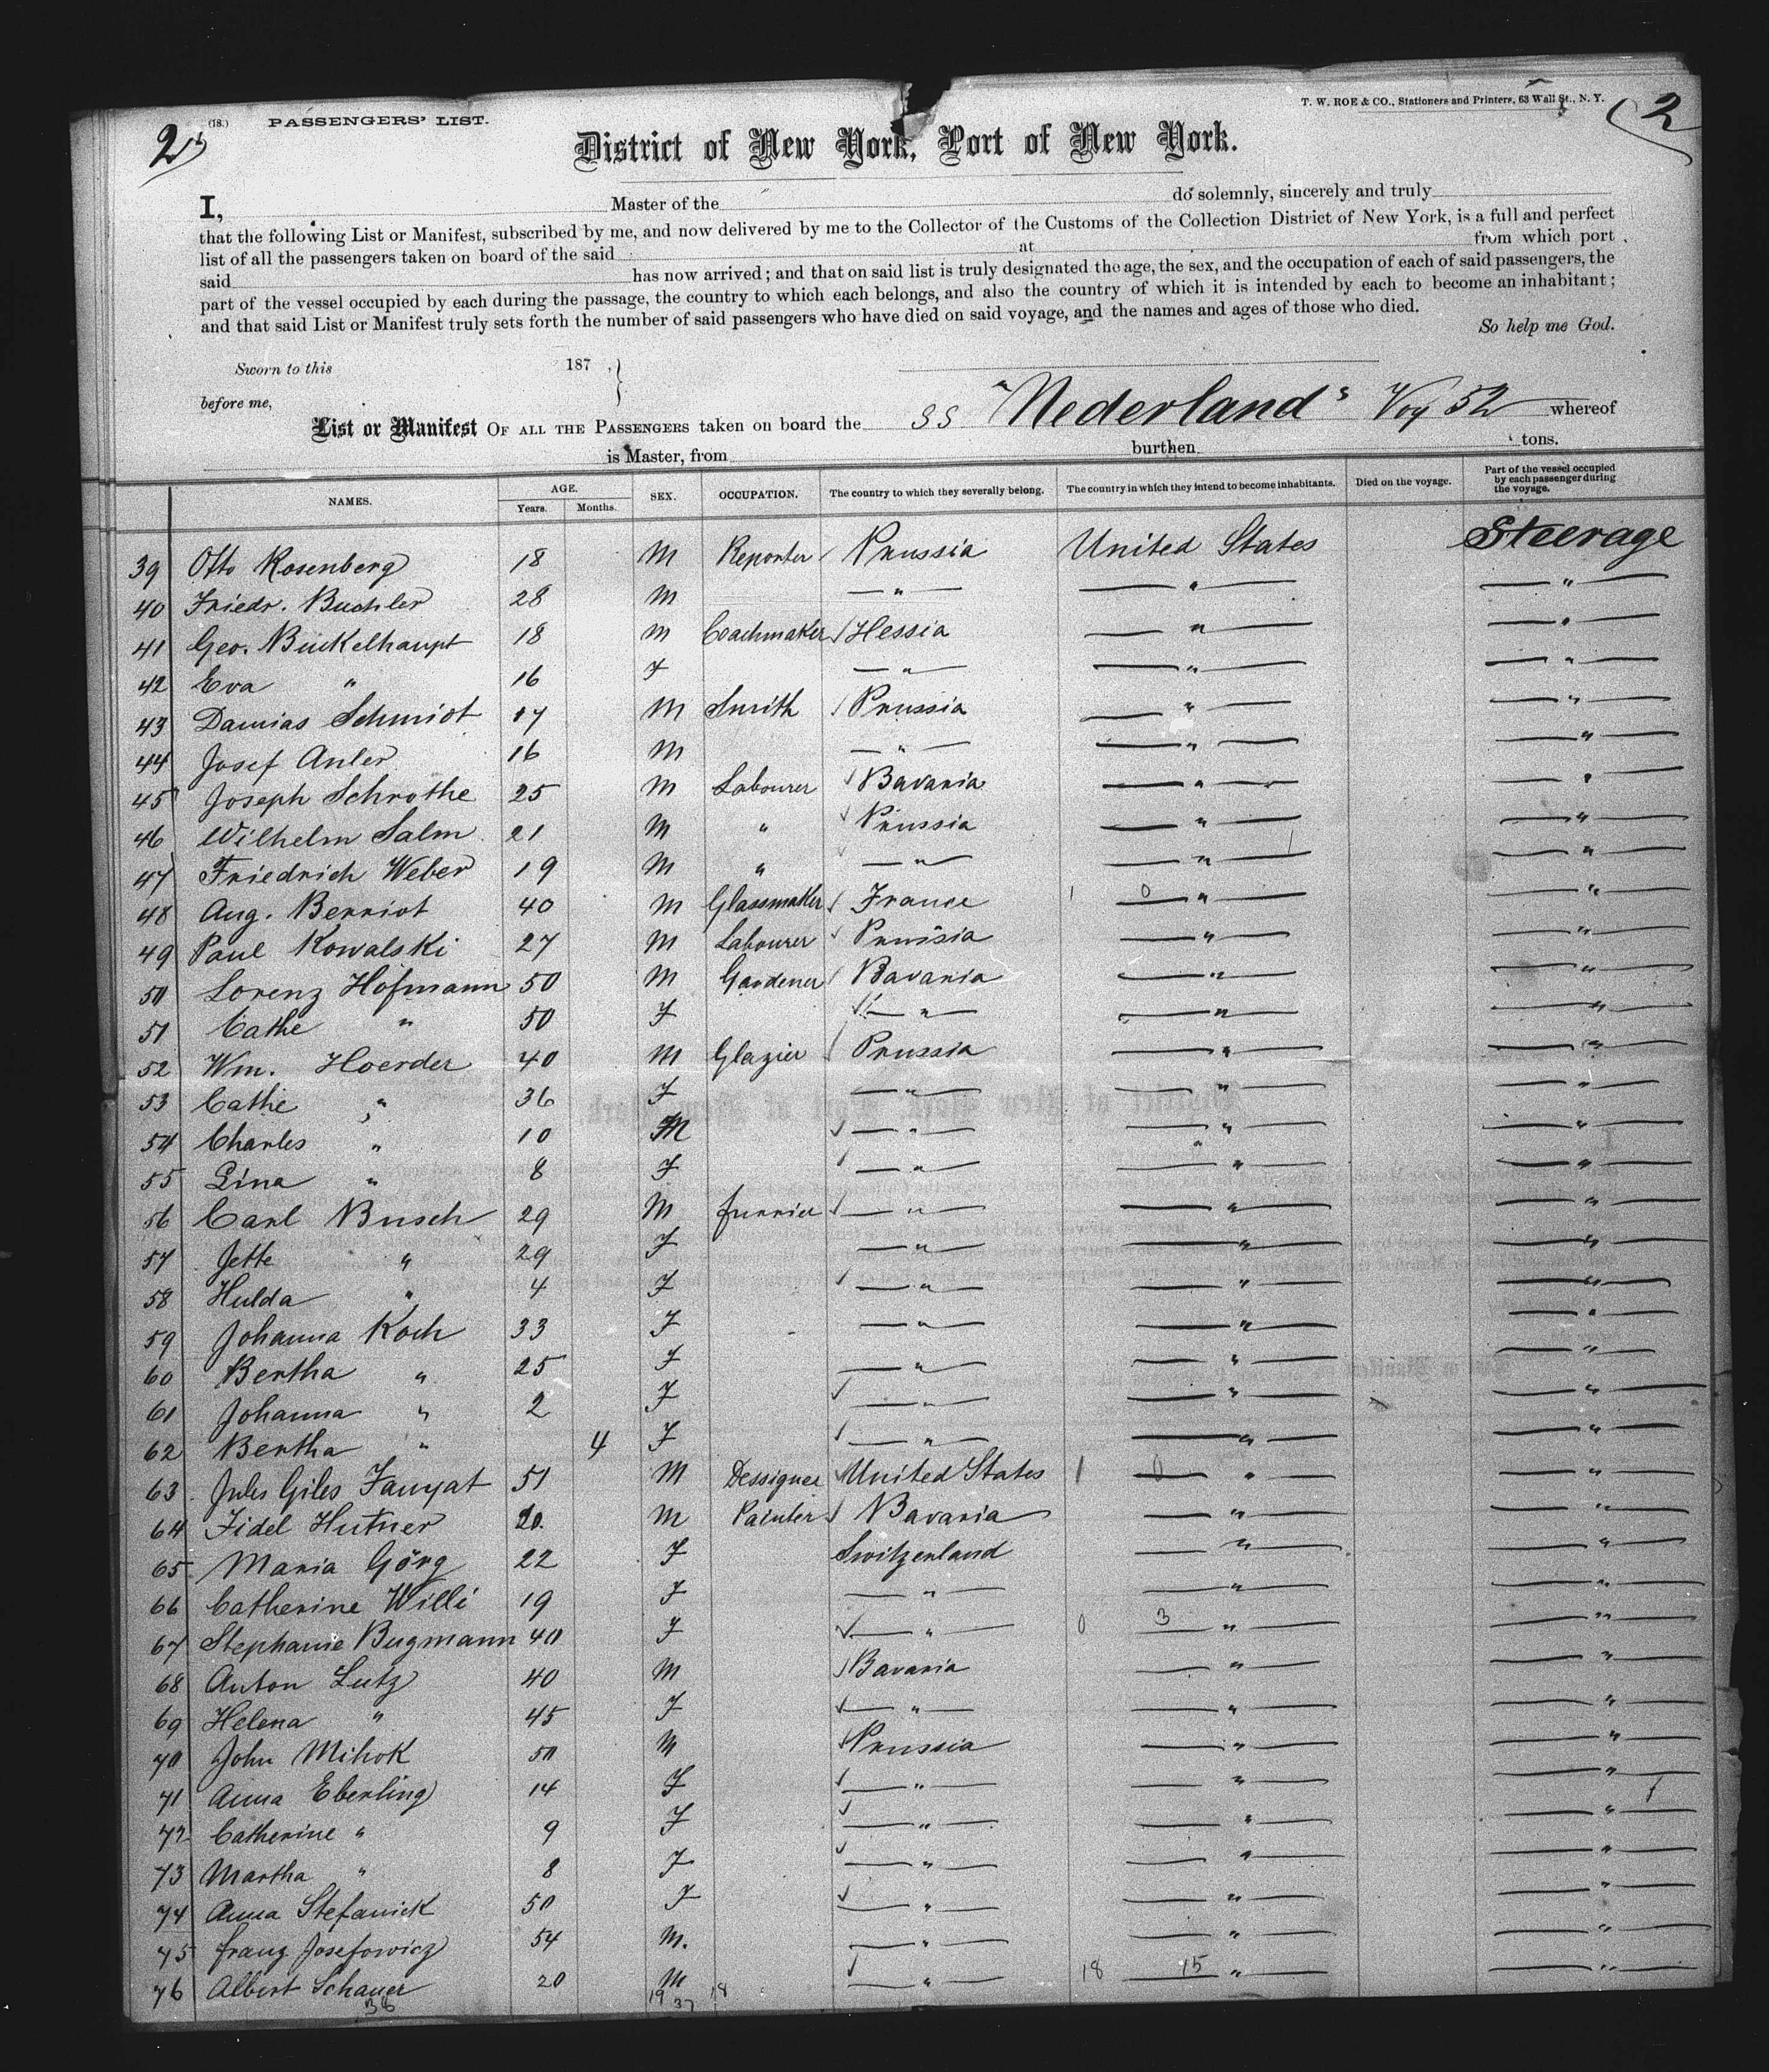 2
(18.) PASSENGERS' LIST.
T. W. ROE & CO., Stationers and Printers, 63 Wall St., N. Y.
2
District of New York, Port of New York.
I, Master of the do solemnly, sincerely and truly
that the following List or Manifest, subscribed by me, and now delivered by me to the Collector of the Customs of the Collection District of New York, is a full and perfect
list of all the passengers taken on board of the said at from which port
said has now arrived; and that on said list is truly designated the age, the sex, and the occupation of each of said passengers, the
part of the vessel occupied by each during the passage, the country to which each belongs, and also the country of which it is intended by each to become an inhabitant;
and that said List or Manifest truly sets forth the number of said passengers who have died on said voyage, and the names and ages of those who died.
So help me God.
Sworn to this 187
before me,
List or Manifest OF ALL THE PASSENGERS taken on board the SS "Nederland" Voy 52 whereof
is Master, from burthen tons.
NAMES. AGE. Years. Months. SEX. OCCUPATION. The country to which they severally belong. The country in which they intend to become inhabitants. Died on the voyage. Part of the vessel occupied by each passenger during the voyage.
39 Otto Rosenberg 18 M Reporter Prussia United States Steerage
40 Friedr. Buchler 28 M " " "
41 Geo. Buckelhaupt 18 M Coachmaker Hessia " "
42 Eva " 16 F " " "
43 Damias Schmidt 17 M Smith Prussia " "
44 Josef Anler 16 M " " "
45 Joseph Schrothe 25 M Labourer Bavaria " "
46 Wilhelm Salm 21 M " Prussia " "
47 Friedrich Weber 19 M " " " "
48 Aug. Berriot 40 M Glassmaker France 1 0 " "
49 Paul Kowalski 27 M Labourer Prussia " "
50 Lorenz Hofmann 50 M Gardener Bavaria " "
51 Cathe " 50 F " " "
52 Wm. Hoerder 40 M Glazier Prussia " "
53 Cathe " 36 F " " "
54 Charles " 10 M " " "
55 Lina " 8 F " " "
56 Carl Busch 29 M furrier " " "
57 Jette " 29 F " " "
58 Hulda " 4 F " " "
59 Johanna Koch 33 F " " "
60 Bertha " 25 F " " "
61 Johanna " 2 F " " "
62 Bertha " 4 F " " "
63 Jules Giles Fauyat 51 M Dessigner United States 1 0 " "
64 Fidel Hutner 20 M Painter Bavaria " "
65 Maria Görg 22 F Switzerland " "
66 Catherine Willi 19 F " " "
67 Stephanie Bugmann 40 F " 0 3 " "
68 Anton Lutz 40 M Bavaria " "
69 Helena " 45 F " " "
70 John Mihok 50 M Prussia " "
71 Anna Eberling 14 F " " "
72 Catherine " 9 F " " "
73 Martha " 8 F " " "
74 Anna Stefanick 50 F " " "
75 Franz Josefowicz 54 M. " " "
76 Albert Schauer 20 M " 18 15 " "
38 19 37 18